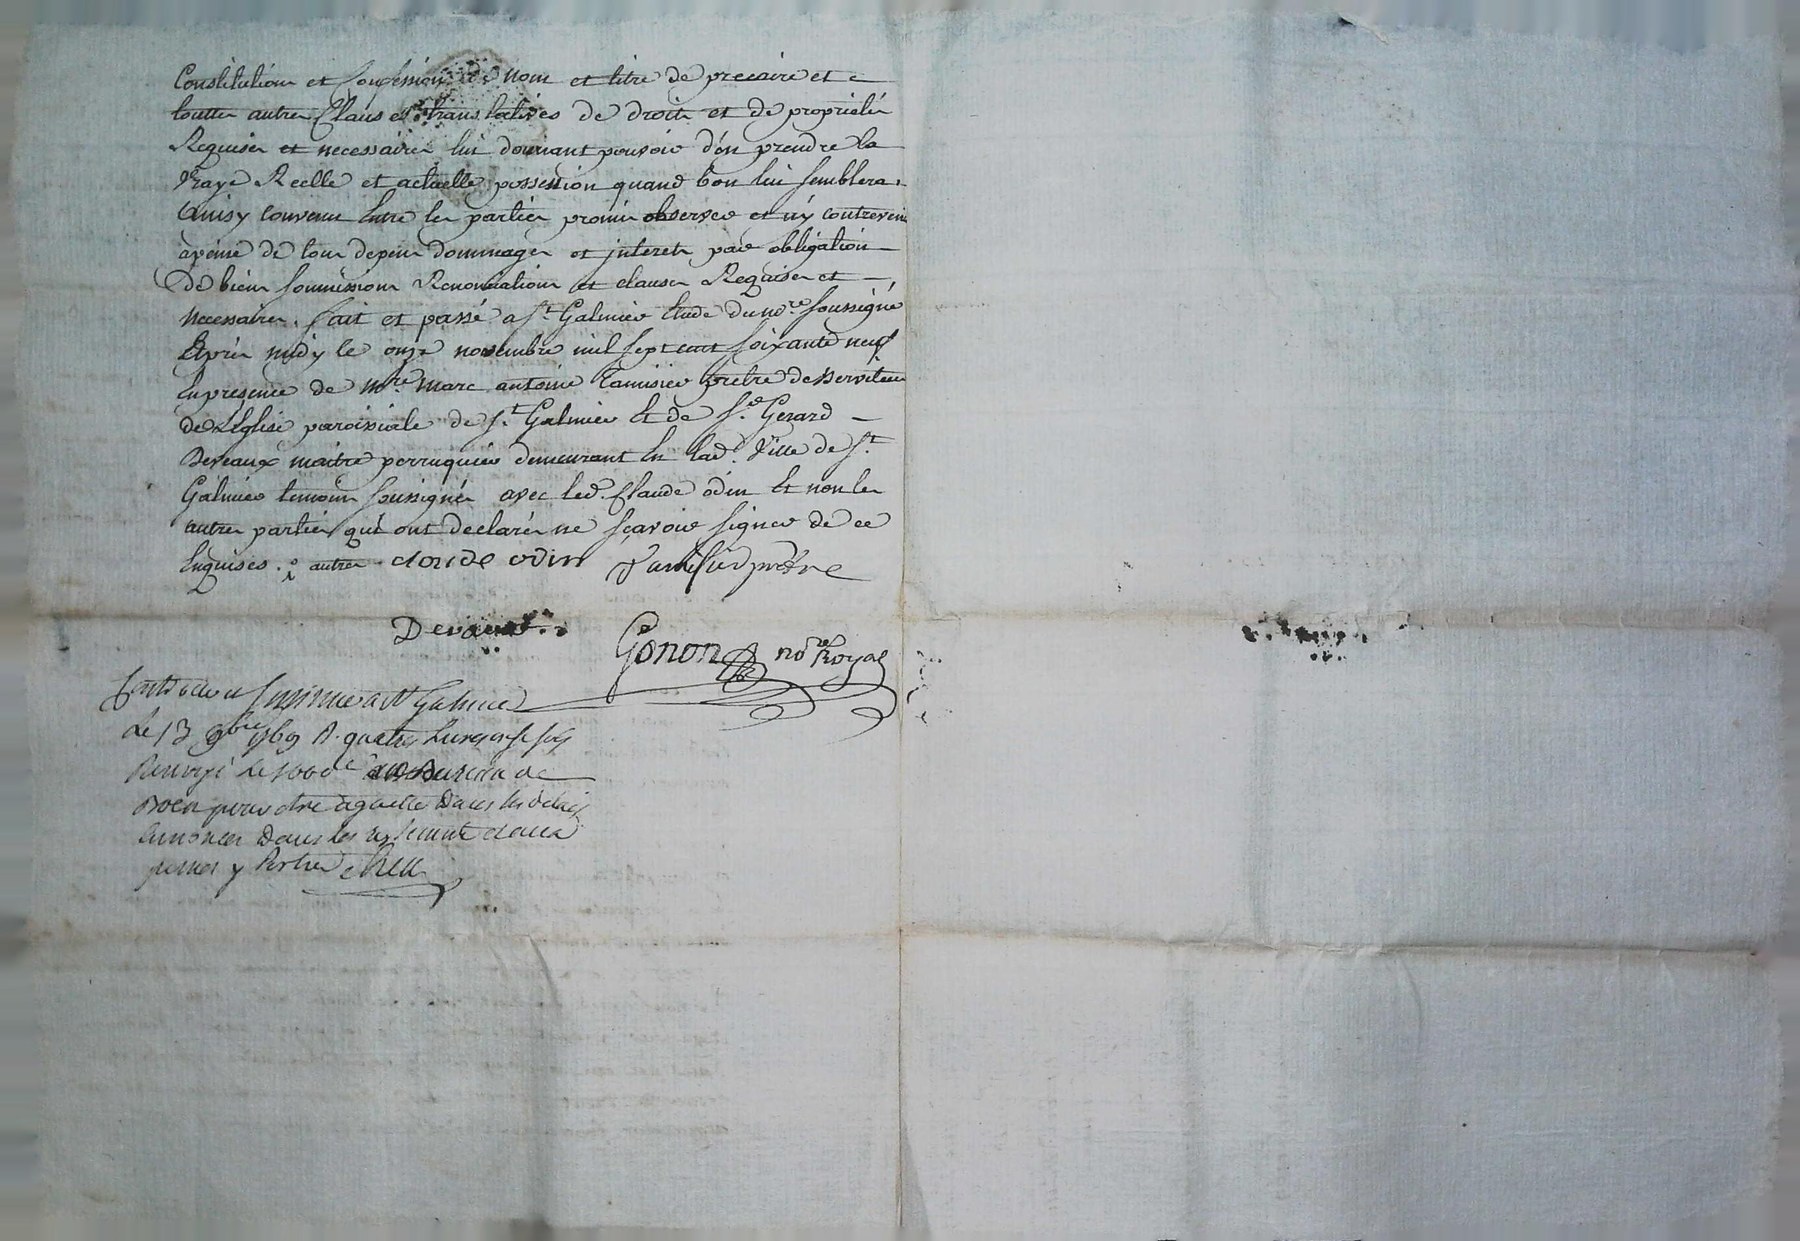 Constitution et Confession de nom et titre de precaire et
touttes autres Clauses translatives de droits et de proprieté
Requises et necessaires lui donnant pouvoir d'en prendre la
vraye Reelle et actuelle possession quand bon lui semblera.
Ainsy convenu entre les parties promis observer et n'y contrevenir
a peine de tous depens dommages et interets par obligation
de biens soumissions Renonciations et clauses Requises et
Necessaires. fait et passé a St Galmier Etude du nore soussigné
Après midy le onze novembre mil sept cent soixante neuf
En presence de mre marc antoine Tamisier prêtre desserviteur
de L'église paroissiale de St Galmier Et de Sr Gerard
Deveaux maitre perruquier demeurant En lad. Ville de St
Galmier temoins soussignés avec led. Claude odin Et non les
autres parties qui ont declarés ne sçavoir signer de ce
Enquises. autres cloude odin Tamisier prêtre
Devaux
Gonon nore Royal
Controlé et Insinué a St Galmier
Le 13 9bre 1769 R. quatre Livres
Renvoyé le 100e au Bureau de
Boen pour être aquitté dans les delais
Enoncés dans les et aux
peines y Portées